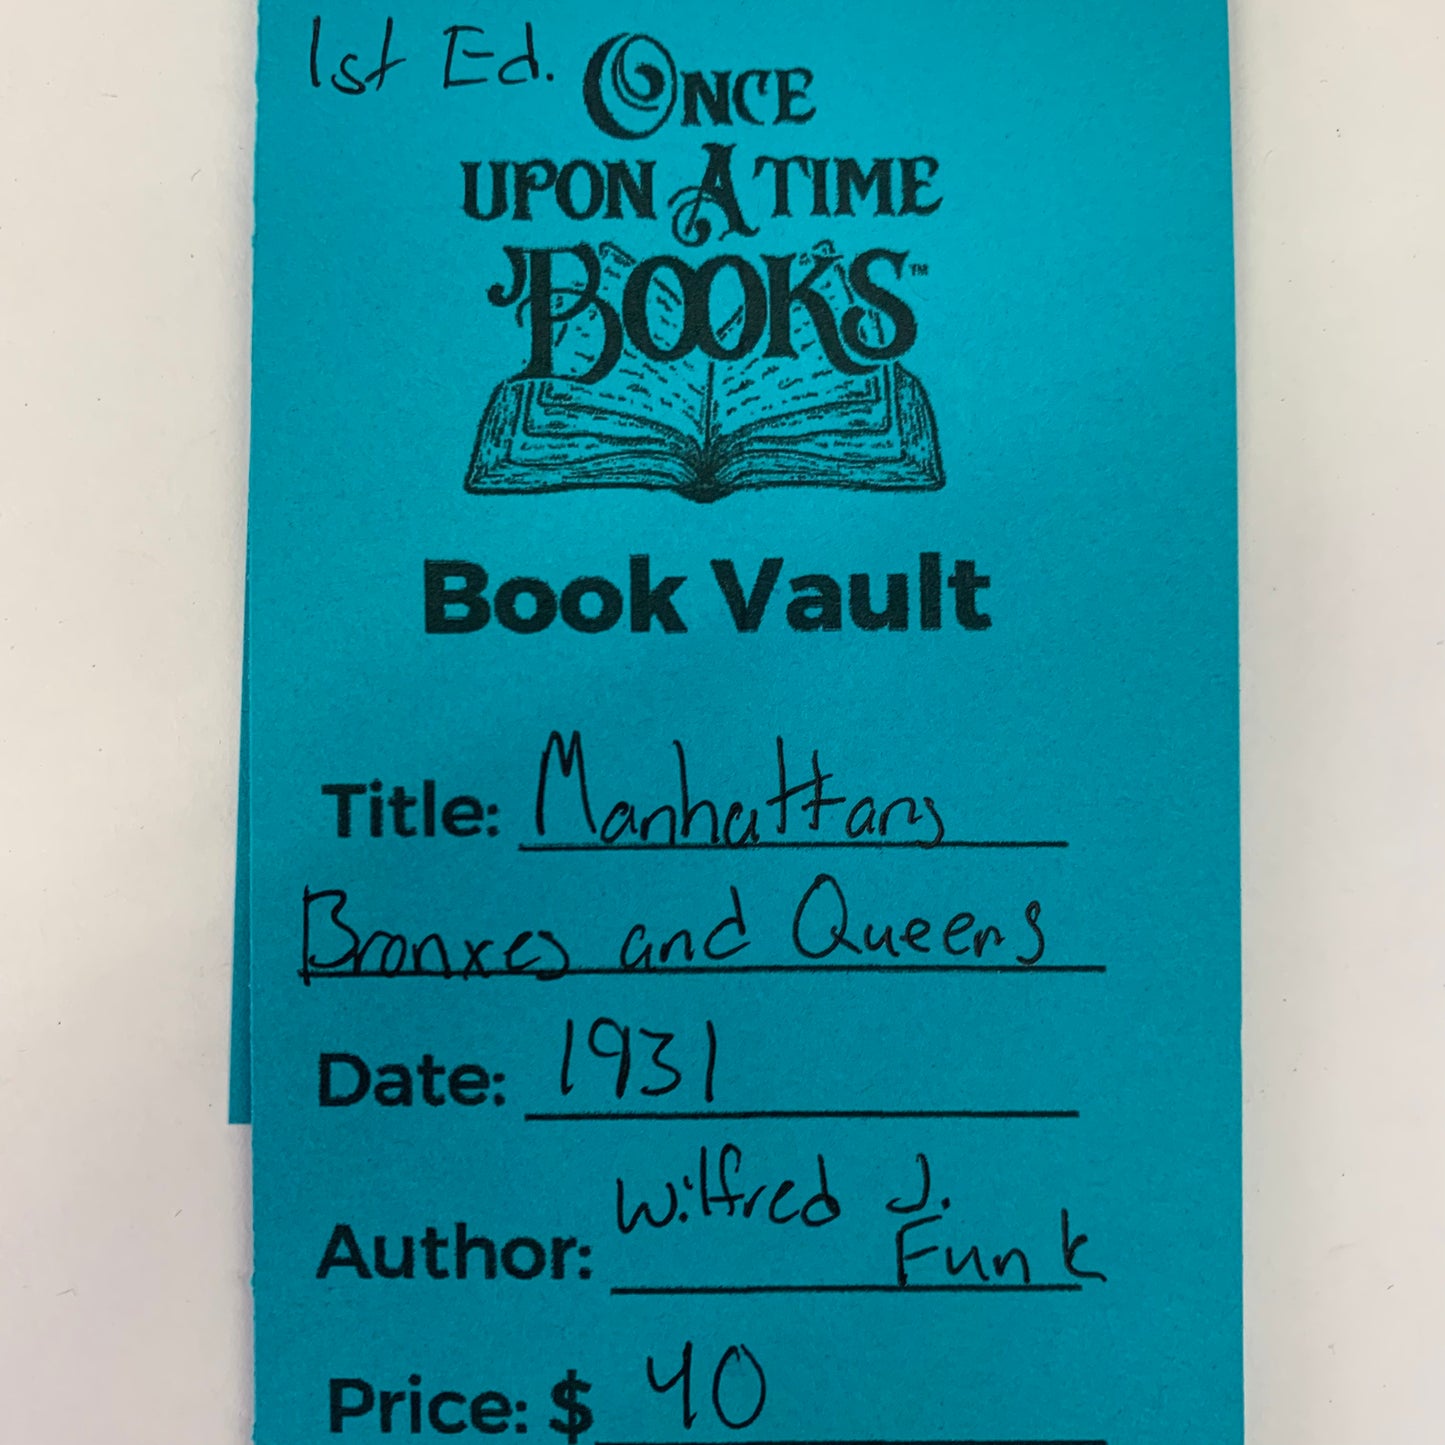 1st Ed.
ONCE
UPON A TIME
BOOKS™
Book Vault
Title: Manhattans
Bronxes and Queens
Date: 1931
Author: Wilfred J.
Funk
Price: $ 40